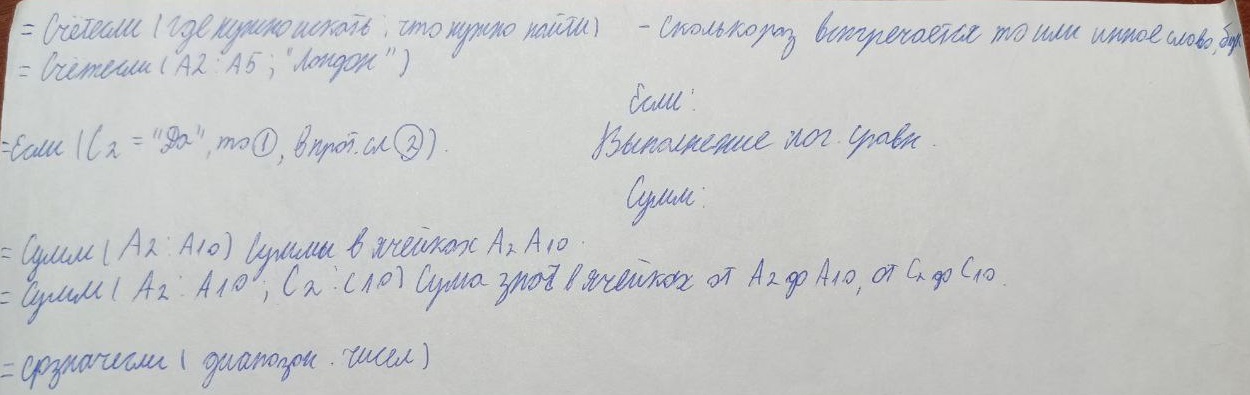 = Счётесли (где нужно искать; что нужно найти) - сколько раз встречается то или иное слово,
= Счётесли (A2:A5; "Лондон")
Если:
=Если (C2 = "Да", то ①, в прот. сл ②).
Выполнение лог. сравн.
Сумм:
= Сумм (A2:A10) Суммы в ячейках A2 A10.
= Сумм (A2:A10; C2:C10) Сума знач в ячейках от A2 до A10, от C2 до C10.
= срзначесли (диапозон. чисел)